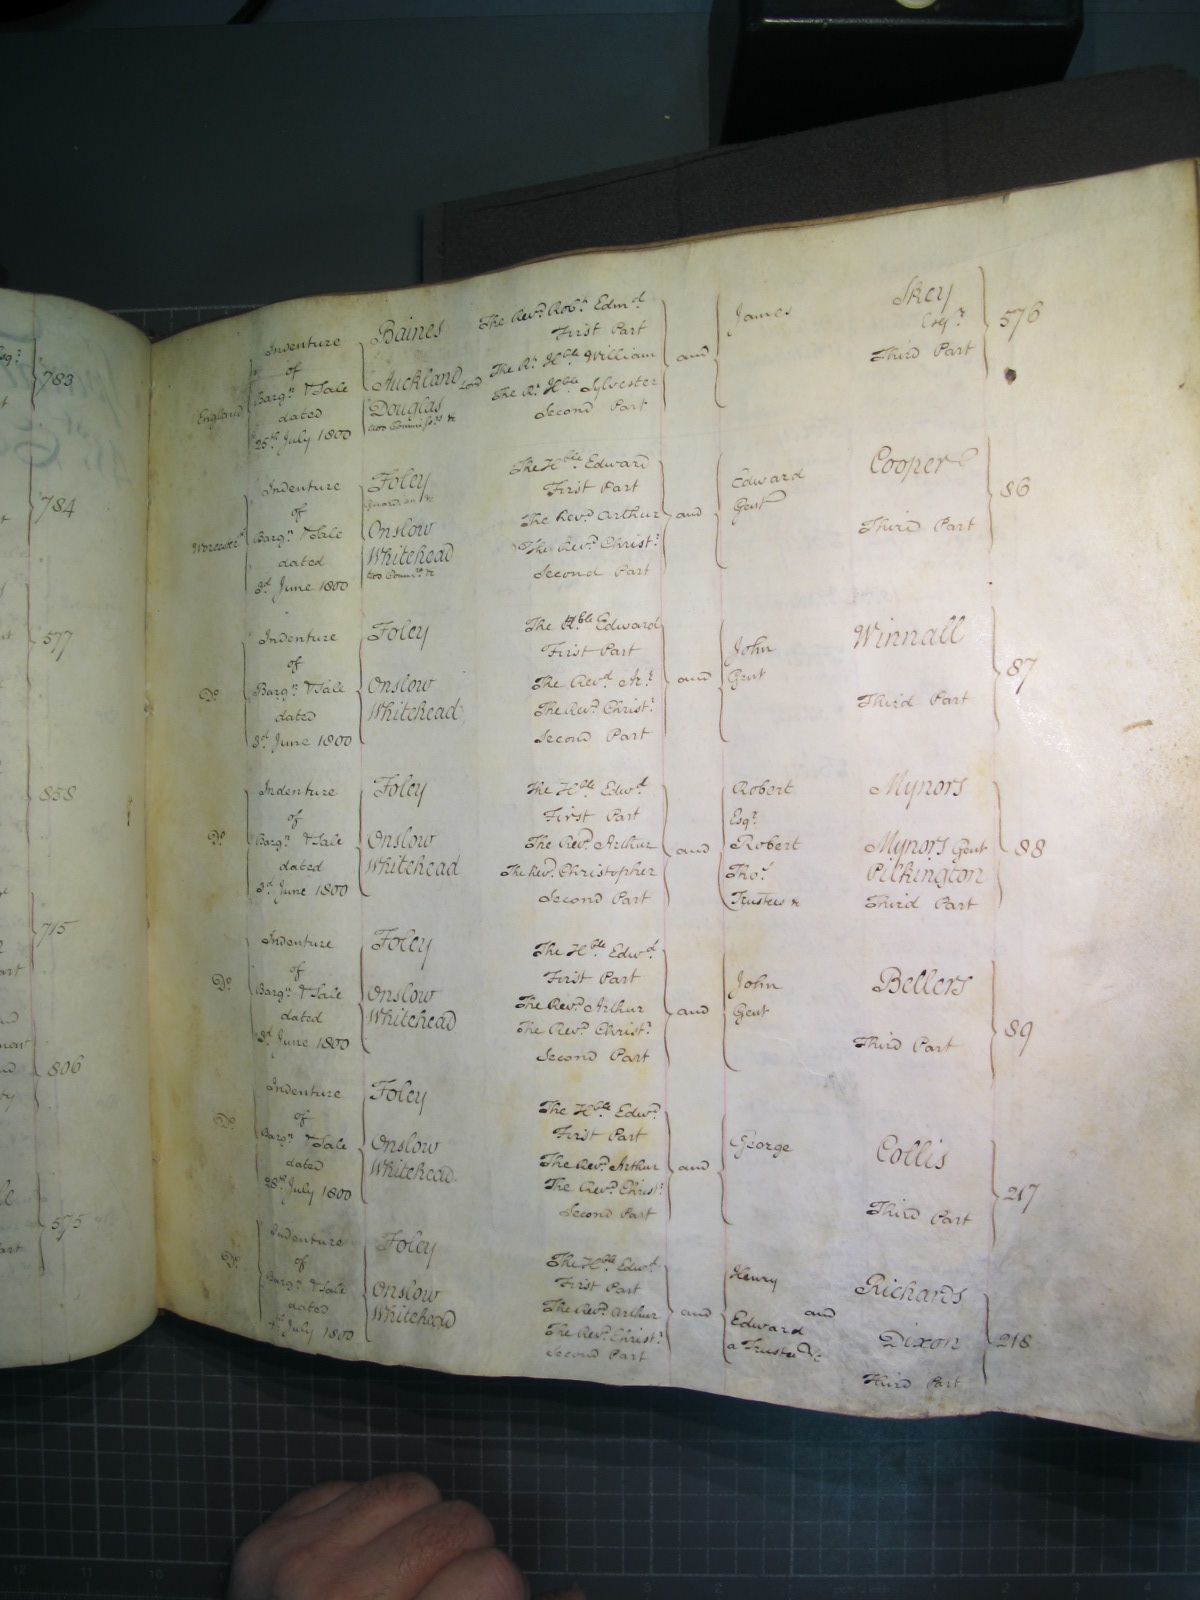 783
784
577
858
715
806
575
England
Indenture
of
Bargn. & Sale
dated
25th July 1800
Baines The Revd. Robt. Edmd.
First Part
Auckland Lord The Rt. Hble William
Douglas The Rt. Hble Sylvester
two Commissrs &c Second Part
and
James Skey
Esqr.
Third Part
576
Worcester
Indenture
of
Bargn. & Sale
dated
3d June 1800
Foley The Hble Edward
Guardian &c First Part
Onslow The Revd. Arthur
Whitehead The Revd. Christr.
two Commrs &c Second Part
and
Edward Cooper
Gent
Third Part
86
Do.
Indenture
of
Bargn. & Sale
dated
3d June 1800
Foley The Hble Edward
First Part
Onslow The Revd. Ar.
Whitehead The Revd. Christr.
Second Part
and
John Winnall
Gent
Third Part
87
Do.
Indenture
of
Bargn. & Sale
dated
3d June 1800
Foley The Hble Edwd.
First Part
Onslow The Revd. Arthur
Whitehead The Revd. Christopher
Second Part
and
Robert Mynors
Esqr.
Robert Mynors Gent
Thos. Pilkington
Trustees &c Third Part
88
Do.
Indenture
of
Bargn. & Sale
dated
3d June 1800
Foley The Hble Edwd.
First Part
Onslow The Revd. Arthur
Whitehead The Revd. Christr.
Second Part
and
John Bellers
Gent
Third Part
89
Do.
Indenture
of
Bargn. & Sale
dated
28th July 1800
Foley The Hble Edwd.
First Part
Onslow The Revd. Arthur
Whitehead The Revd. Christr.
Second Part
and
George Collis
Third Part
217
Do.
Indenture
of
Bargn. & Sale
dated
July 1800
Foley The Hble Edwd.
First Part
Onslow The Revd. Arthur
Whitehead The Revd. Christr.
Second Part
and
Henry Richards
and
Edward Dixon
a Trustee &c
Third Part
218